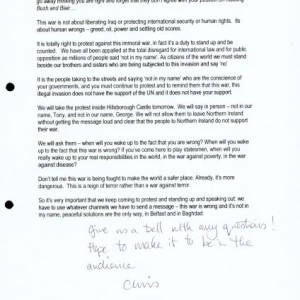 go away thinking you are right and forget that they don't agree with your position on
Bush and Blair...
This war is not about liberating Iraq or protecting international security or human rights. Its
about human wrongs – greed, oil, power and settling old scores.
It is totally right to protest against this immoral war, in fact it's a duty to stand up and be
counted. We have all been appalled at the total disregard for international law and for public
opposition as millions of people said 'not in my name'. As citizens of the world we must stand
beside our brothers and sisters who are being subjected to this invasion and say 'no'
It is the people taking to the streets and saying 'not in my name' who are the conscience of
your governments, and you must continue to protest and to remind them that this war, this
illegal invasion does not have the support of the UN and it does not have your support.
We will take the protest inside Hillsborough Castle tomorrow. We will say in person – not in our
name, Tony, and not in our name, George. We will not allow them to leave Northern Ireland
without getting the message loud and clear that the people to Northern Ireland do not support
their war.
We will ask them – when will you wake up to the fact that you are wrong? When will you wake
up to the fact that this war is wrong? If you've come here to play statesmen, when will you
really wake up to your real responsibilities in the world, in the war against poverty, in the war
against disease?
Don't tell me this war is being fought to make the world a safer place. Already, it's more
dangerous. This is a reign of terror rather than a war against terror.
So it's very important that we keep coming to protest and speaking and speaking out: we
have to use whatever channels we have to send a message – this war is wrong and it's not in
my name, peaceful solutions are the only way, in Belfast and in Baghdad.
Give us a bell with any questions!
Hope to make it to be in the
audience
Chris